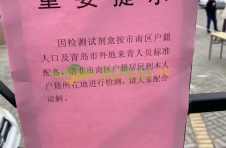 重要提示
因检测试剂盒按市南区户籍
人口及青岛市外地来青人员标准
配备，请非市南区户籍居民到本人
户籍所在地进行检测，请大家配合
谅解。